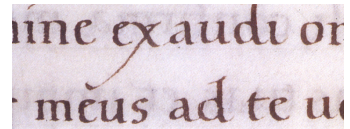 ine exaudi or
meus ad te ue